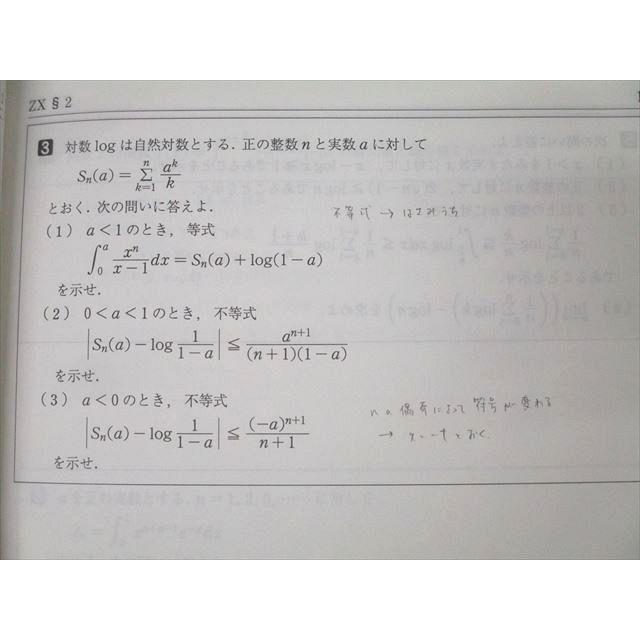 ZX § 2
3 対数 log は自然対数とする. 正の整数 n と実数 a に対して
S_n(a) = \sum_{k=1}^{n} \frac{a^k}{k}
とおく. 次の問いに答えよ.
不等式 → はさみうち
(1) a < 1 のとき, 等式
\int_0^a \frac{x^n}{x-1} dx = S_n(a) + log(1-a)
を示せ.
(2) 0 < a < 1 のとき, 不等式
|S_n(a) - log \frac{1}{1-a}| ≦ \frac{a^{n+1}}{(n+1)(1-a)}
を示せ.
(3) a < 0 のとき, 不等式
n の偶奇によって 符号が変わる
|S_n(a) - log \frac{1}{1-a}| ≦ \frac{(-a)^{n+1}}{n+1}
→ x = -t とおく
を示せ.